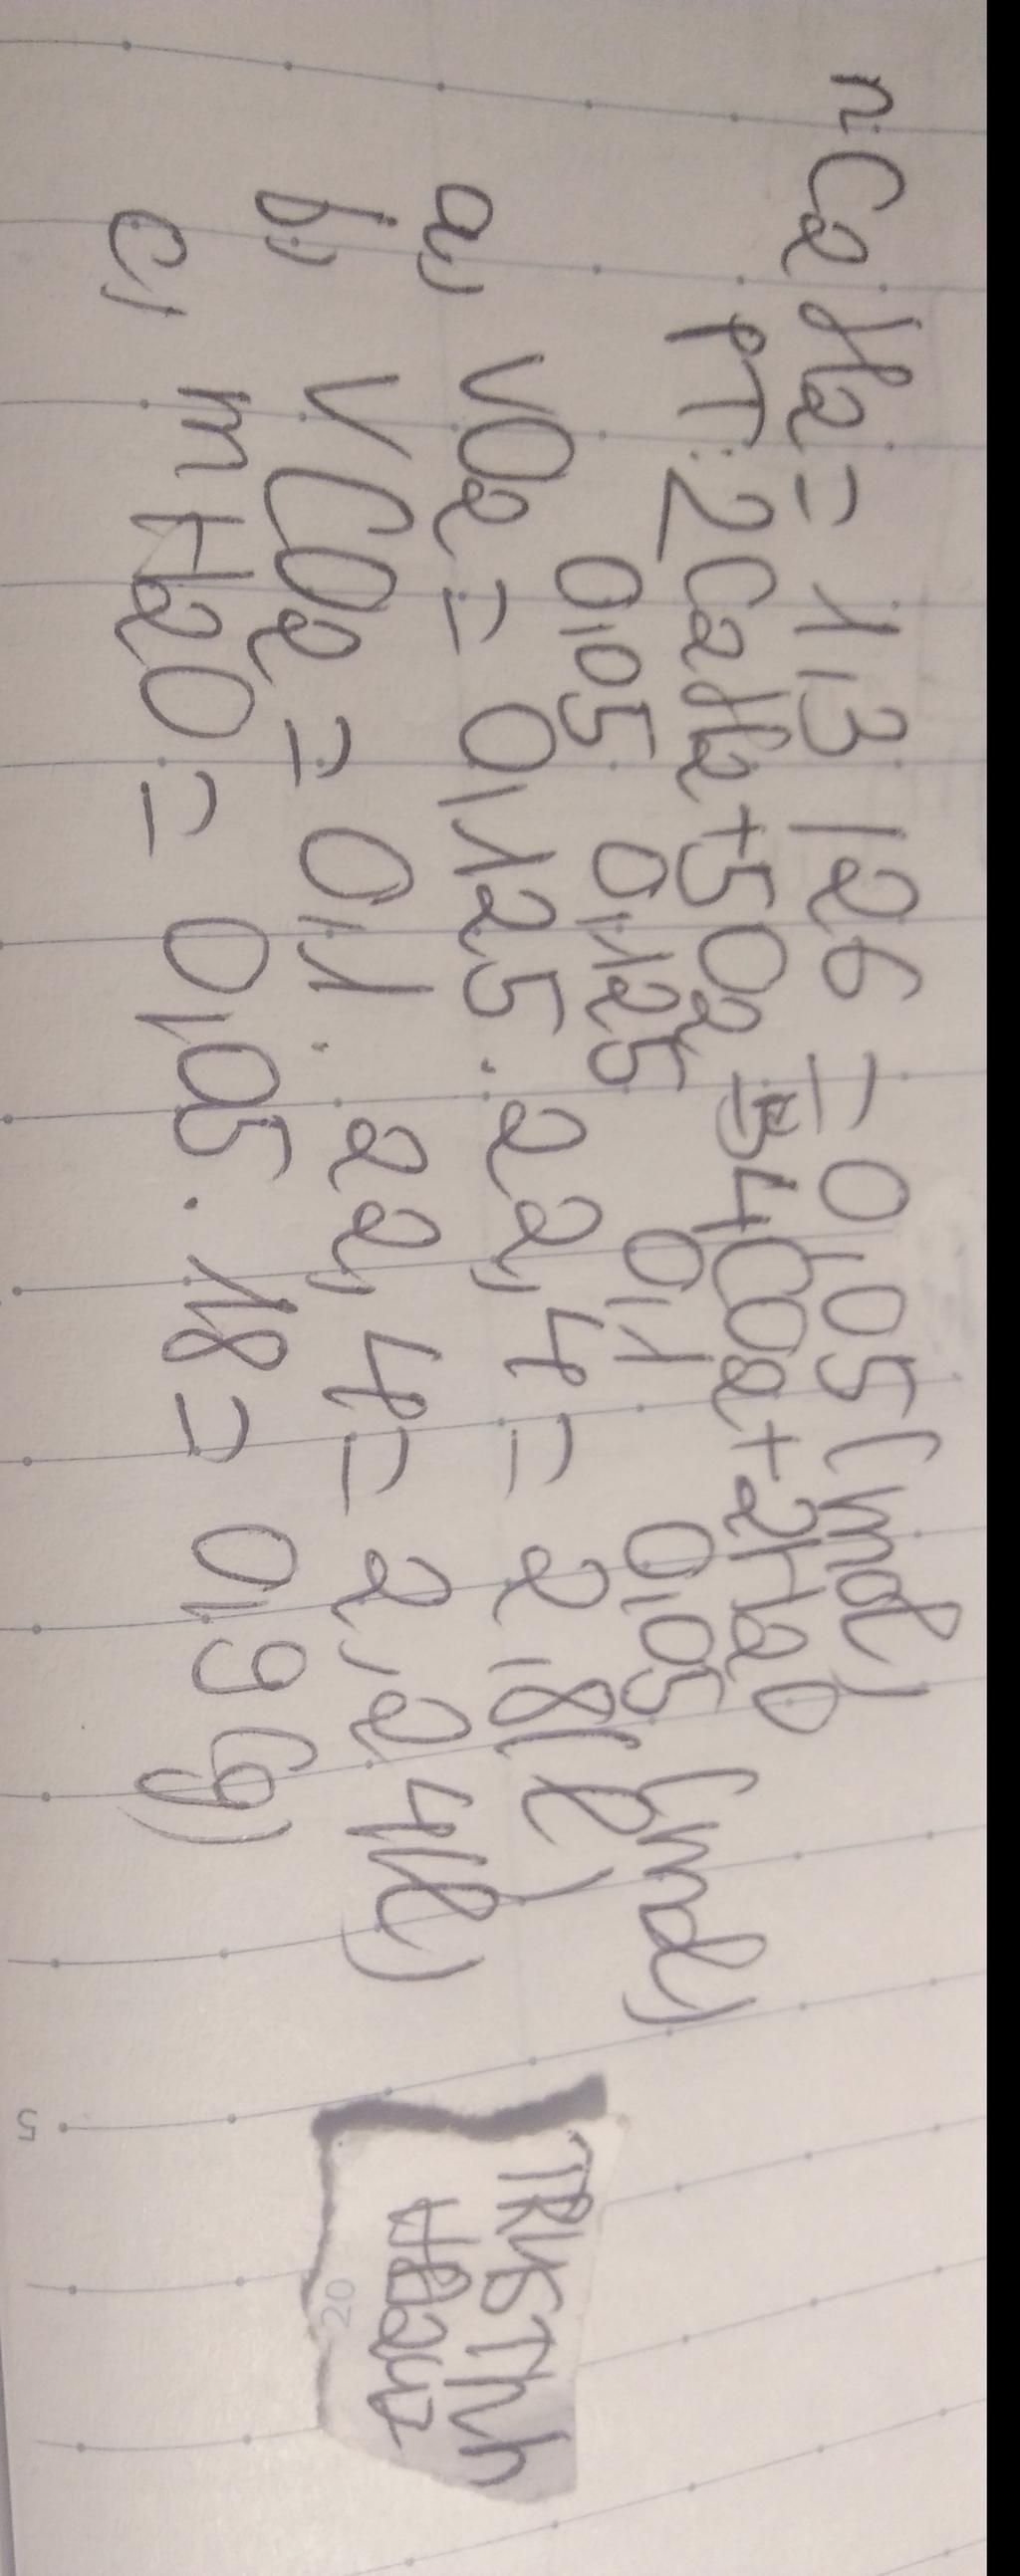 n: C2H2 = 1,3 / 26 = 0,05 (mol)
PT: 2C2H2 + 5O2 = 4CO2 + 2H2O
0,05 0,125 0,1 0,05 (mol)
a, VO2 = 0,125 . 22,4 = 2,8 (l)
b, VCO2 = 0,1 . 22,4 = 2,24 (l)
c, mH2O = 0,05 . 18 = 0,9 (g)
5
20